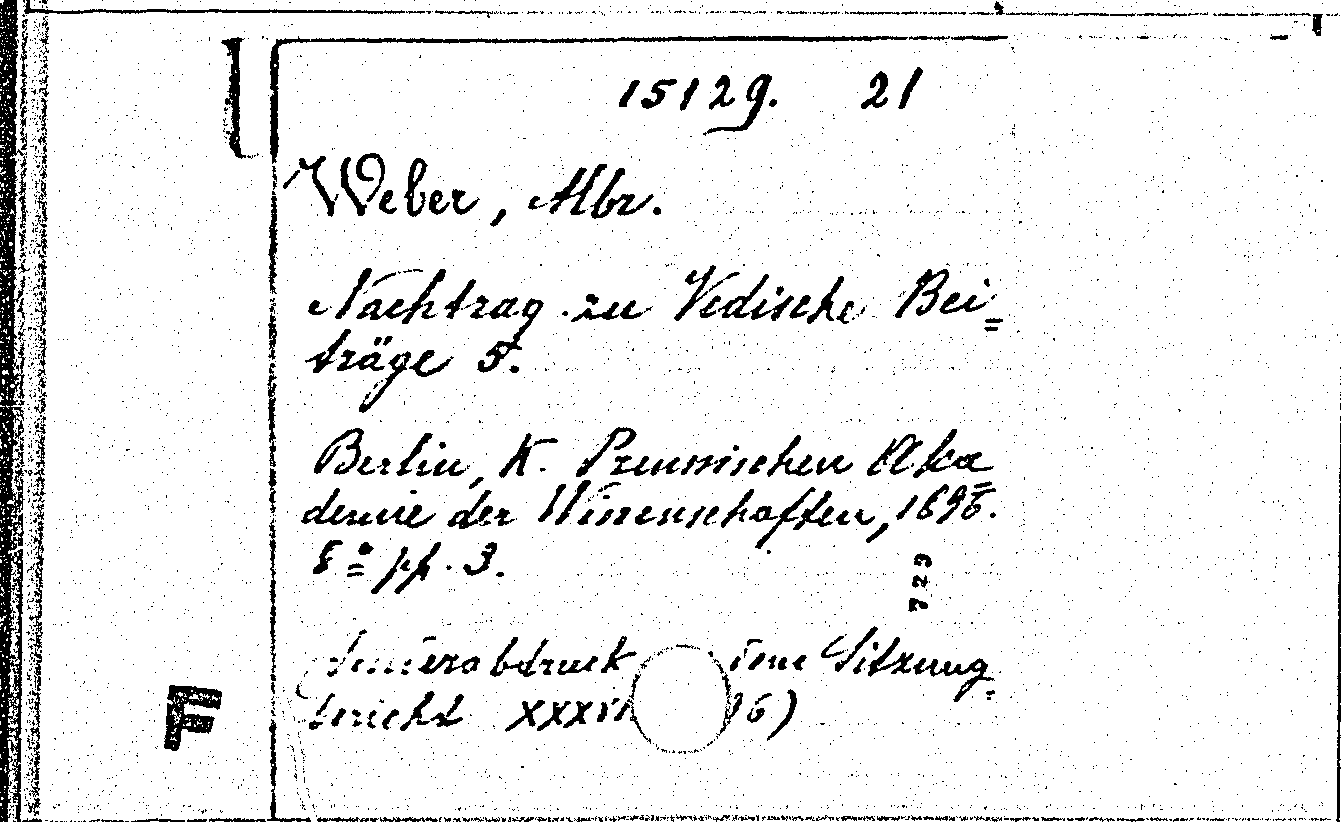 15129. 21
Weber, Albr.
Nachtrag zu Vedische Bei=
träge 5.
Berlin, K. Preussischen Aka=
demie der Wissenschaften, 1896.
8º pp. 3.
729
dem Sitzung=
bericht
F